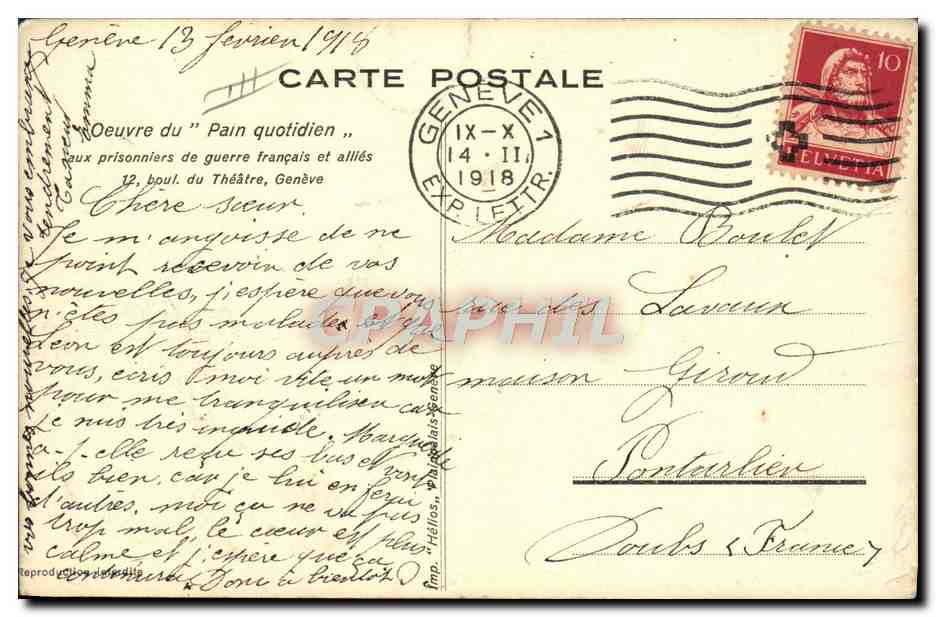 Genève 13 février 1918
CARTE POSTALE
Oeuvre du " Pain quotidien "
aux prisonniers de guerre français et alliés
12, boul. du Théâtre, Genève
GENÈVE 1
IX-X
14 · II
1918
EXP. LETTR.
10
HELVETIA
Chère sœur
Je m'angoisse de ne
point recevoir de vos
nouvelles, j'espère que vous
n'êtes pas malade et que
Léon est toujours auprès de
vous, écris moi vite un mot
pour me tranquiliser car
je suis très inquiète.
a-t-elle reçu ses bas et vont
ils bien, car je lui en ferai
d'autres, moi ça ne va pas
trop mal, le cœur est plus
calme et j'espère que ça
Donc à bientôt
vos bonnes nouvelles. Je vous embrasse
tendrement
Ta sœur
Emma
Madame Boulet
rue des Lavaux
maison Giroud
Pontarlier
Doubs (France)
CPAPHIL
Imp. "Hélios" Plainpalais-Genève
Reproduction interdite